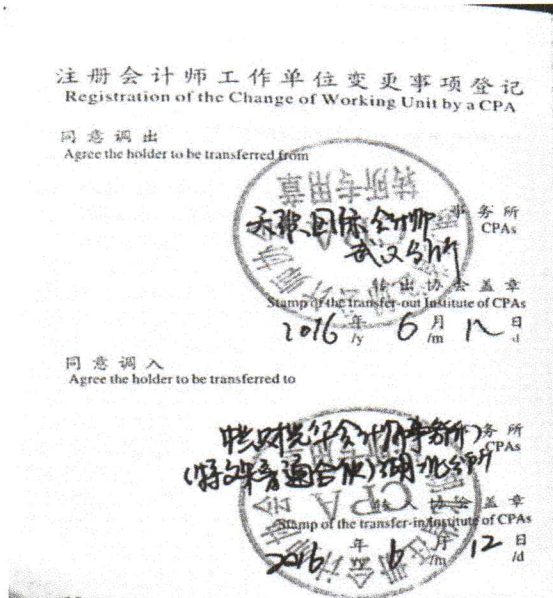 注册会计师工作单位变更事项登记
Registration of the Change of Working Unit by a CPA
同意调出
Agree the holder to be transferred from
转所专用章
国际会计师事务所
CPAs
武汉分所
转出协会盖章
Stamp of the transfer-out Institute of CPAs
2016 年 /y 6 月 /m 12 日 /d
同意调入
Agree the holder to be transferred to
中兴财光华会计师事务所 事务所
CPAs
(特殊普通合伙)湖北分所
CPA
协会盖章
Stamp of the transfer-in Institute of CPAs
2016 年 6 月 /m 12 日 /d